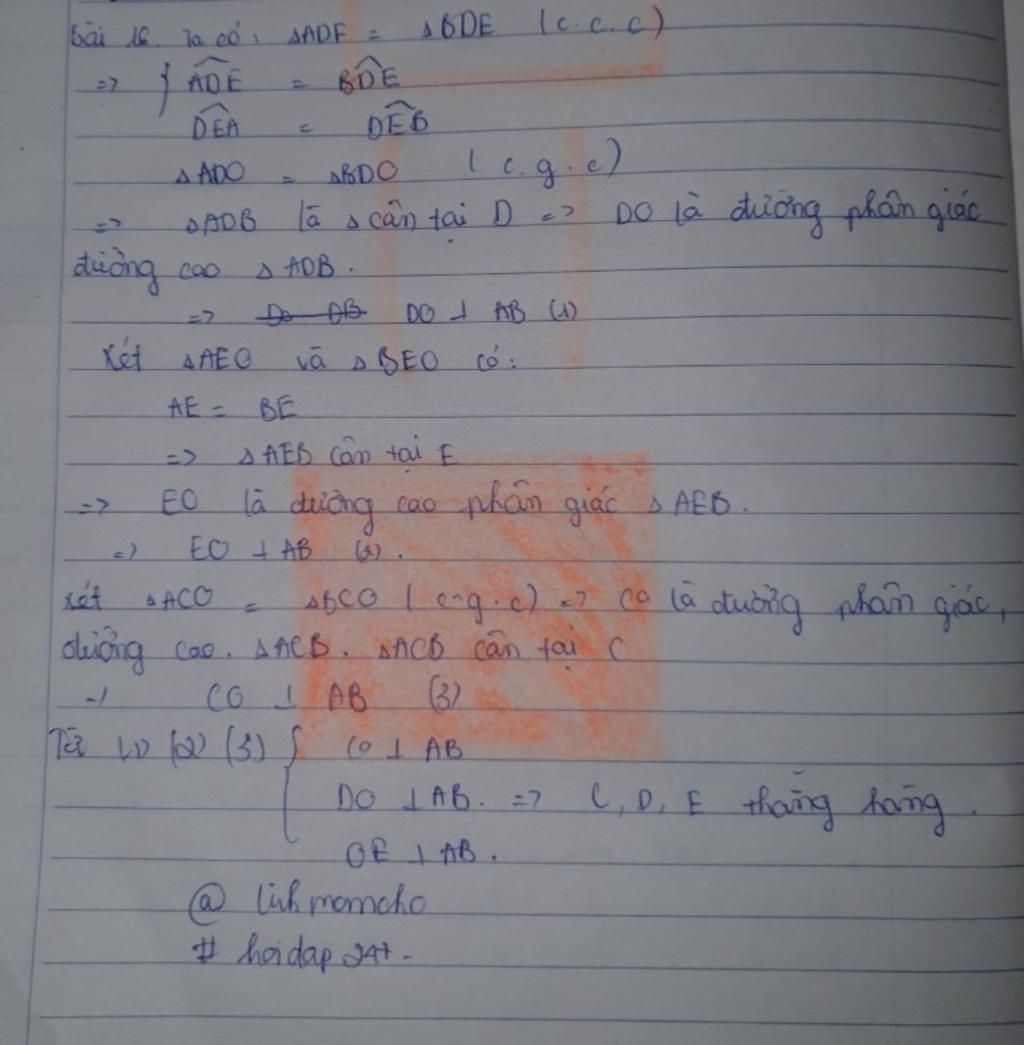 bài 16. Ta có: ΔADE = ΔBDE (c.c.c)
=> { ADE = BDE
DEA = DEB
ΔADO = ΔBDO (c.g.c)
=> ΔADB là Δ cân tại D => DO là đường phân giác
đường cao ΔADB.
=> DO ⊥ AB (1)
Xét ΔAEO và ΔBEO có:
AE = BE
=> ΔAEB cân tại E
=> EO là đường cao phân giác ΔAEB.
=> EO ⊥ AB (2).
xét ΔACO = ΔBCO (c-g.c) => CO là đường phân giác,
đường cao. ΔACB. ΔACB cân tại C
=> CO ⊥ AB (3)
Từ (1) (2) (3) { CO ⊥ AB
DO ⊥ AB. => C, D, E thẳng hàng.
OE ⊥ AB.
@ linhmomcho
# hoidap247.